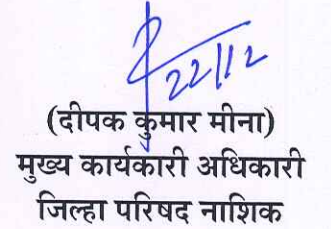 22/12
(दीपक कुमार मीना)
मुख्य कार्यकारी अधिकारी
जिल्हा परिषद नाशिक